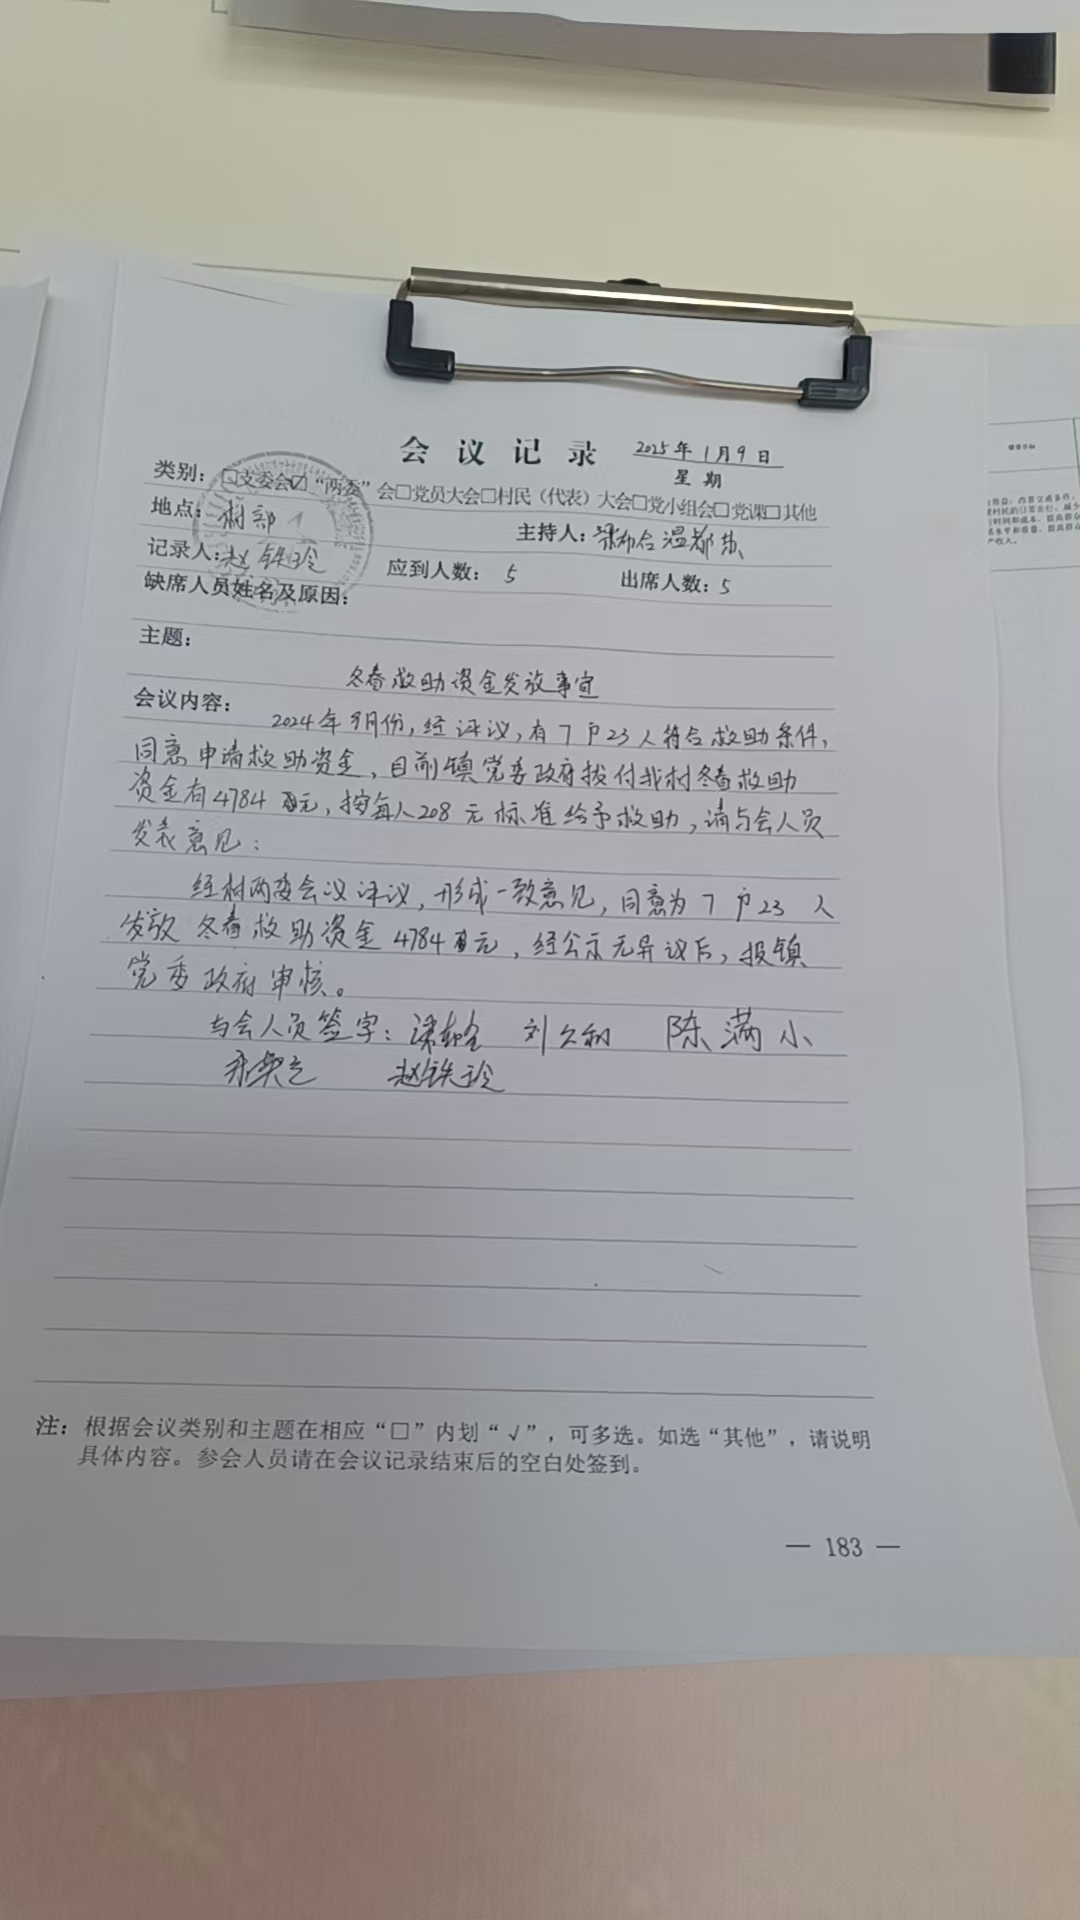 会议记录 2025年1月9日
星期
类别：□支委会☑“两委”会□党员大会□村民（代表）大会□党小组会□党课□其他
地点：村部 主持人：梁布合温都苏
记录人：赵铁玲 应到人数：5 出席人数：5
缺席人员姓名及原因：
主题：
冬春救助资金发放事宜
会议内容：
2024年9月份，经评议，有7户23人符合救助条件，
同意申请救助资金，目前镇党委政府拨付我村冬春救助
资金有4784元，按每人208元标准给予救助，请与会人员
发表意见：
经村两委会议评议，形成一致意见，同意为7户23人
发放冬春救助资金4784元，经公示无异议后，报镇
党委政府审核。
与会人员签字： 刘久和 陈满小
赵铁玲
注：根据会议类别和主题在相应“□”内划“√”，可多选。如选“其他”，请说明
具体内容。参会人员请在会议记录结束后的空白处签到。
— 183 —